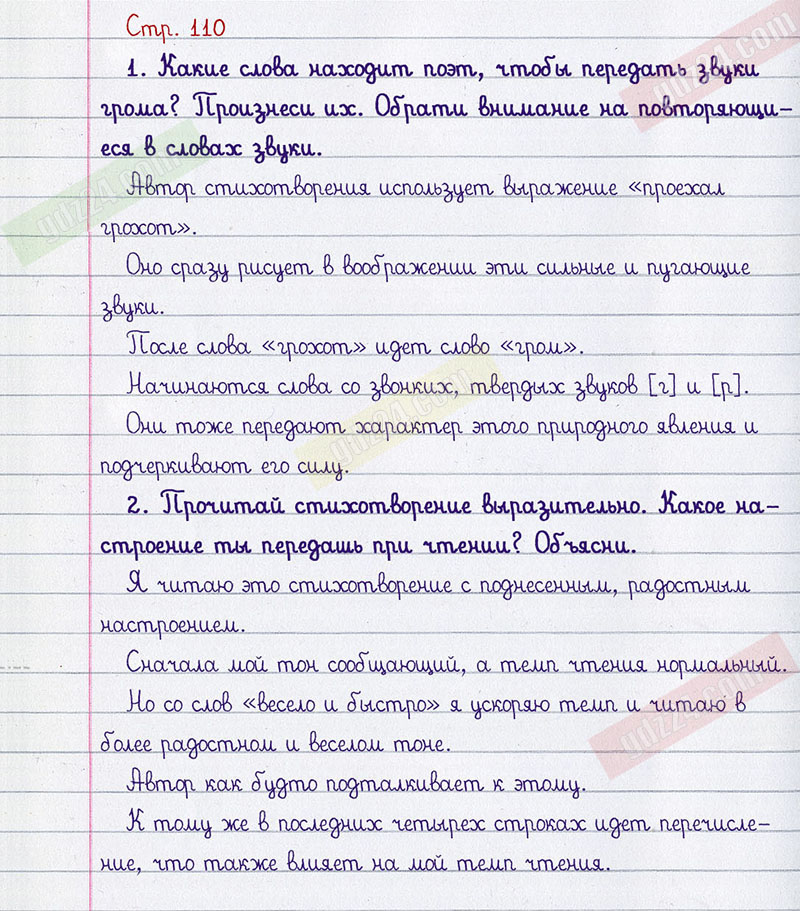 Стр. 110
1. Какие слова находит поэт, чтобы передать звуки
грома? Произнеси их. Обрати внимание на повторяющи-
еся в словах звуки.
Автор стихотворения использует выражение «проехал
грохот».
Оно сразу рисует в воображении эти сильные и пугающие
звуки.
После слова «грохот» идет слово «гром».
Начинаются слова со звонких, твердых звуков [г] и [р].
Они тоже передают характер этого природного явления и
подчеркивают его силу.
2. Прочитай стихотворение выразительно. Какое на-
строение ты передашь при чтении? Объясни.
Я читаю это стихотворение с поднесенным, радостным
настроением.
Сначала мой тон сообщающий, а темп чтения нормальный.
Но со слов «весело и быстро» я ускоряю темп и читаю в
более радостном и веселом тоне.
Автор как будто подталкивает к этому.
К тому же в последних четырех строках идет перечисле-
ние, что также влияет на мой темп чтения.
gdz24.com
gdz24.com
gdz24.com
gdz24.com